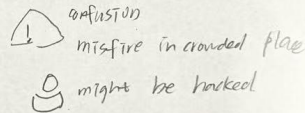 !
confusion
misfire in crowded place
might be hacked